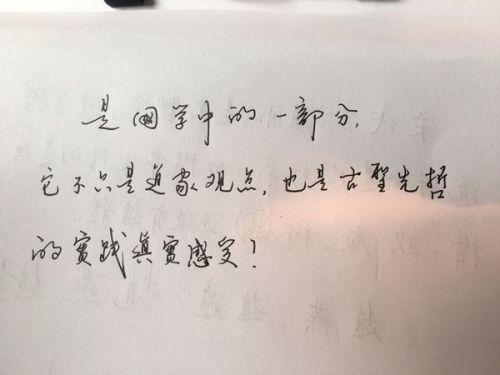 是国学中的一部分，
它不只是道家观点，也是古聖先哲
的實践真實感受！